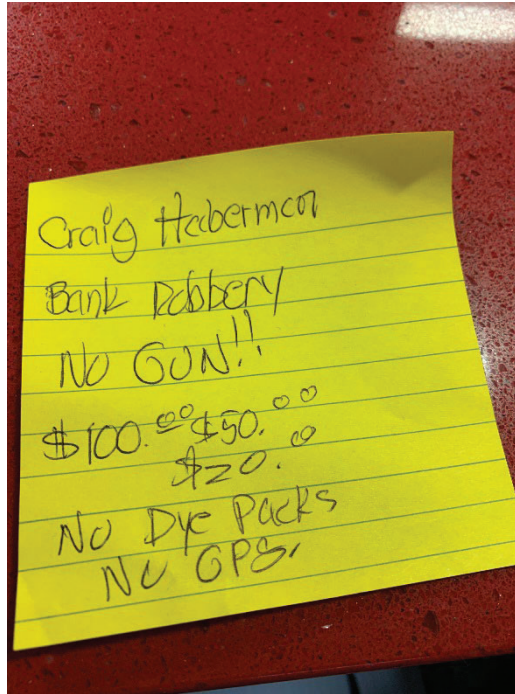 Craig Haberman
Bank Robbery
NO GUN!!
$100.00 $50.00
$20.00
No Dye Packs
NO GPS.